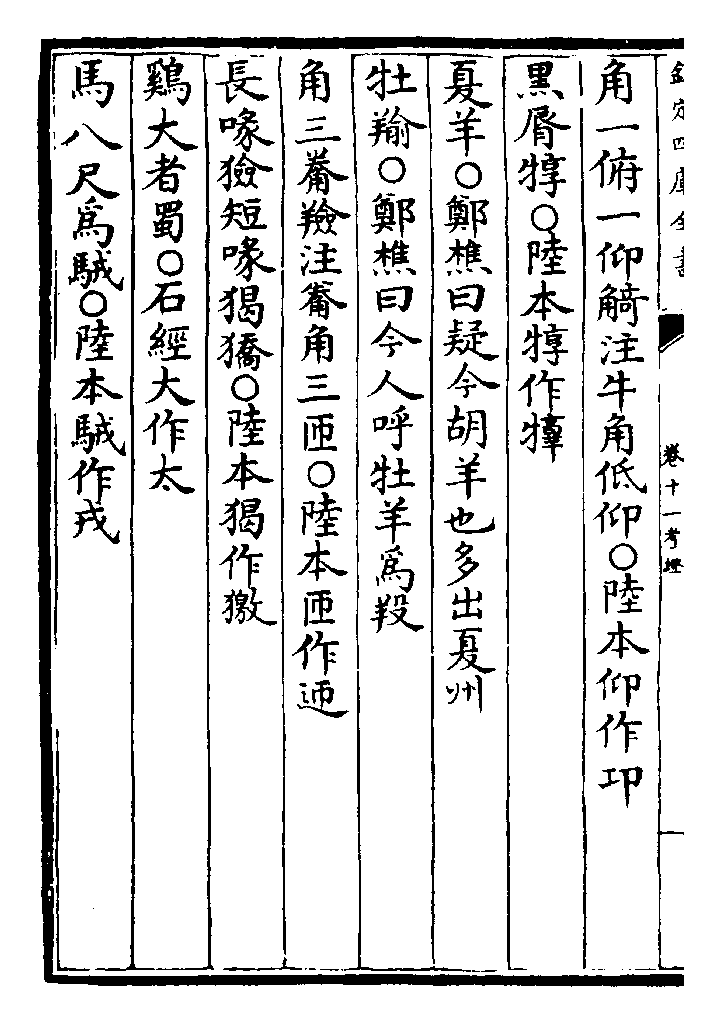 欽定四庫全書
卷十一考證
角一俯一仰觭注牛角低仰○陸本仰作卬
黑脣犉○陸本犉作𤛿
夏羊○鄭樵曰疑今胡羊也多出夏州
牡羭○鄭樵曰今人呼牡羊爲羖
角三觠羷注觠角三匝○陸本匝作迊
長喙獫短喙猲獢○陸本猲作獥
鷄大者蜀○石經大作太
馬八尺爲駥○陸本駥作戎